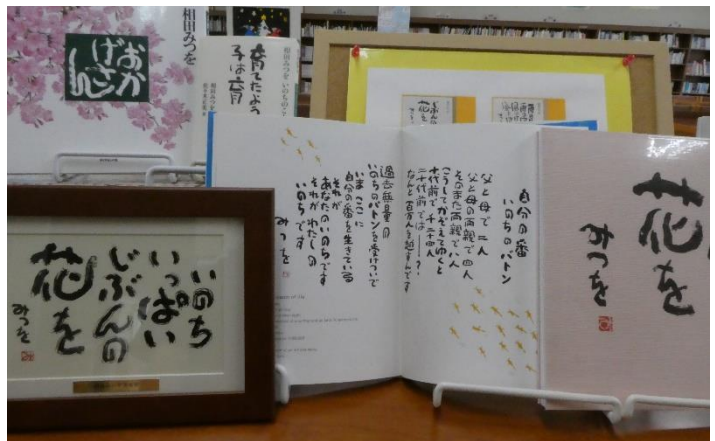 相田みつを
おか
げさん
相田みつを いのちのことば
育てたように
子は育つ
自分の番
いのちのバトン
父と母で二人
父と母の両親で四人
そのまた両親で八人
こうしてかぞえてゆくと
十代前で千二十四人
二十代前では―?
なんと百万人を越すんです
過去無量の
いのちのバトンを受けついで
いまここに
自分の番を生きている
それが
あなたのいのちです
それがわたしの
いのちです
みつを
花を
みつを
いのち
いっぱい
じぶんの
花を
みつを